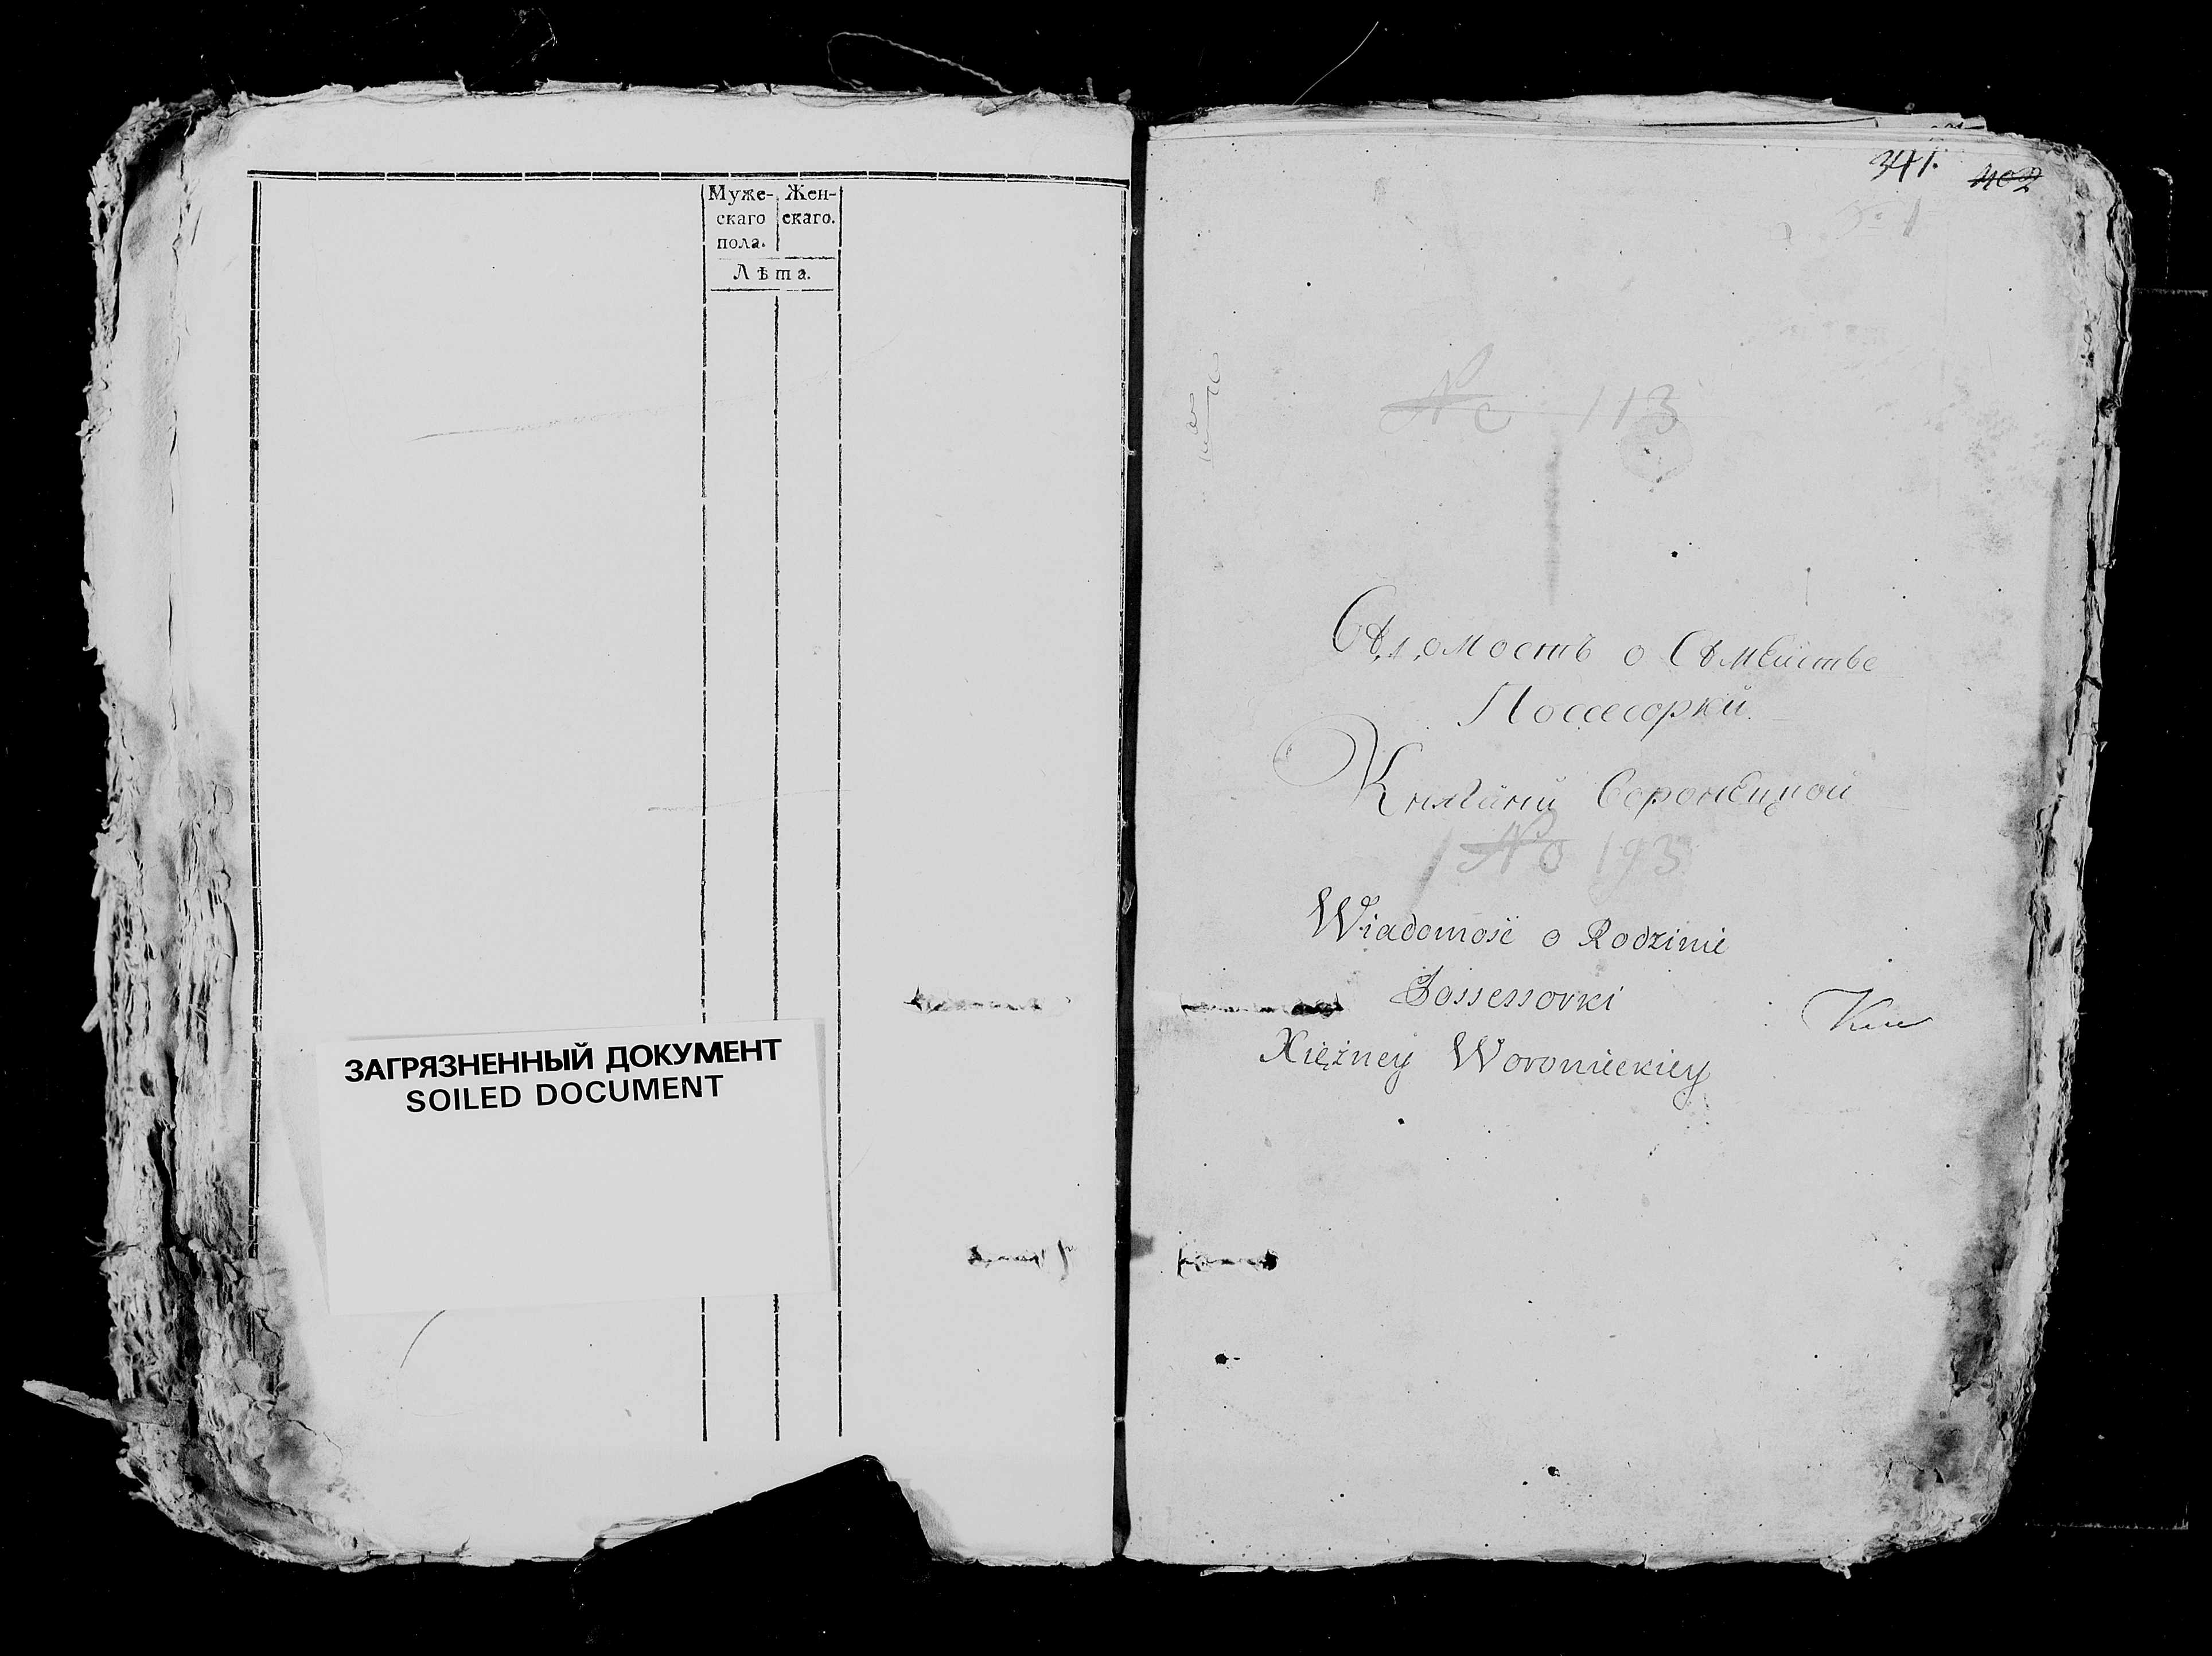 Муже- Жен-
скаго скаго.
пола.
Лѣта.
ЗАГРЯЗНЕННЫЙ ДОКУМЕНТ
SOILED DOCUMENT
341. 402
№ 113
Вѣдомость о Сѣмействе
Поссесоркй
Княгини Воронецкой
№ 193
Wiadomość o Rodzinie
Possessorki
Xiężney Woronieckiey